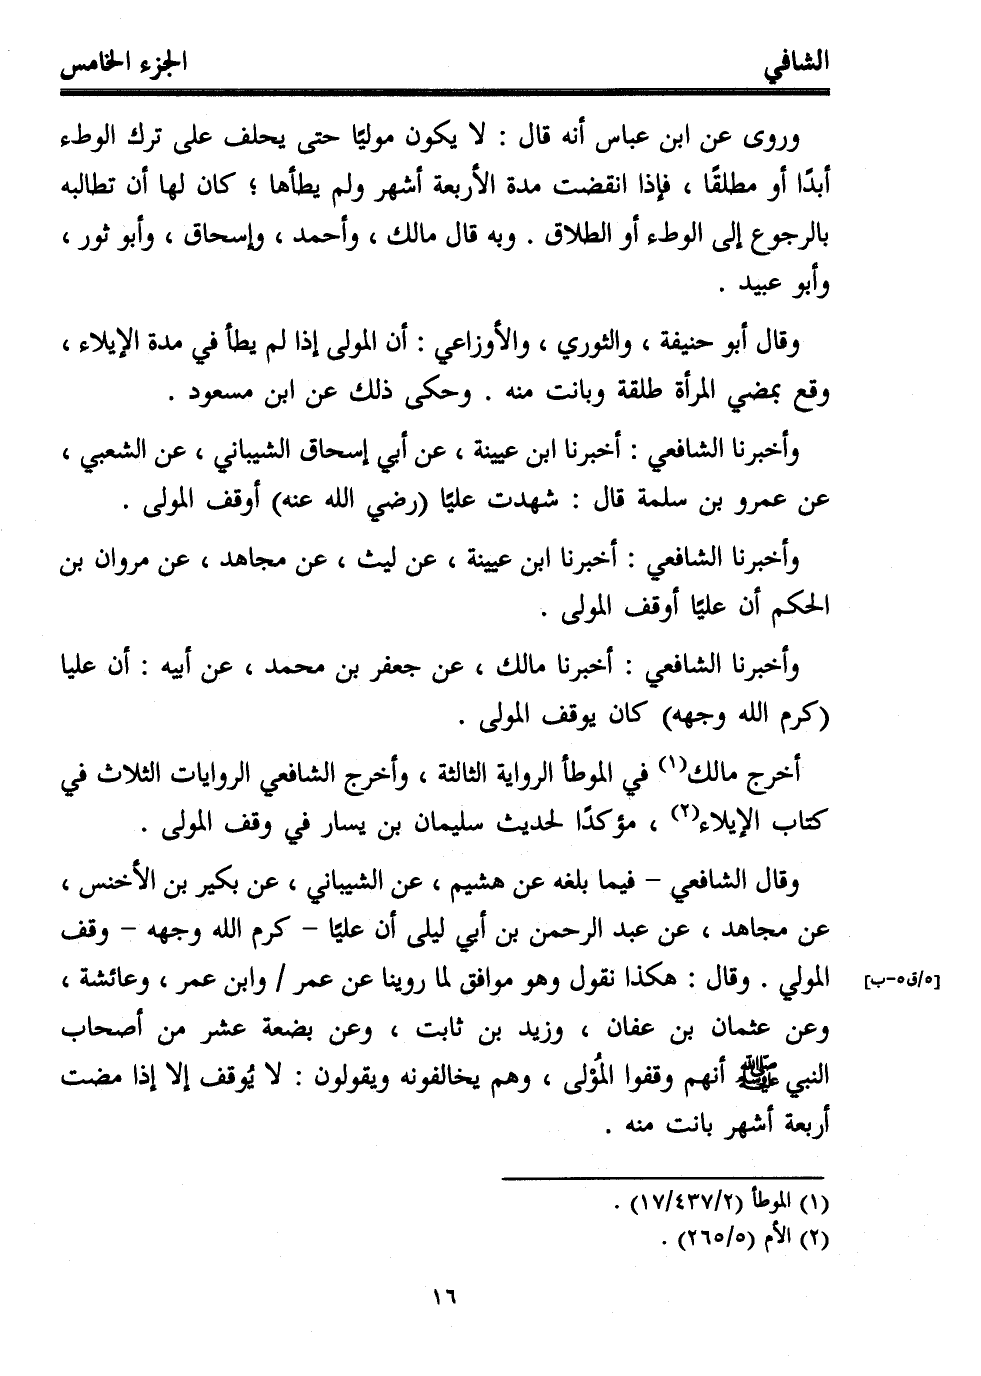 الشافي
الجزء الخامس
وروى عن ابن عباس أنه قال : لا يكون موليًا حتى يحلف على ترك الوطء
أبدًا أو مطلقًا ، فإذا انقضت مدة الأربعة أشهر ولم يطأها ؛ كان لها أن تطالبه
بالرجوع إلى الوطء أو الطلاق . وبه قال مالك ، وأحمد ، وإسحاق ، وأبو ثور ،
وأبو عبيد .
وقال أبو حنيفة ، والثوري ، والأوزاعي : أن المولى إذا لم يطأ في مدة الإيلاء ،
وقع بمضي المرأة طلقة وبانت منه . وحكى ذلك عن ابن مسعود .
وأخبرنا الشافعي : أخبرنا ابن عيينة ، عن أبي إسحاق الشيباني ، عن الشعبي ،
عن عمرو بن سلمة قال : شهدت عليًا (رضي الله عنه) أوقف المولى .
وأخبرنا الشافعي : أخبرنا ابن عيينة ، عن ليث ، عن مجاهد ، عن مروان بن
الحكم أن عليًا أوقف المولى .
وأخبرنا الشافعي : أخبرنا مالك ، عن جعفر بن محمد ، عن أبيه : أن عليا
(كرم الله وجهه) كان يوقف المولى .
أخرج مالك(١) في الموطأ الرواية الثالثة ، وأخرج الشافعي الروايات الثلاث في
كتاب الإيلاء(٢) ، مؤكدًا لحديث سليمان بن يسار في وقف المولى .
وقال الشافعي – فيما بلغه عن هشيم ، عن الشيباني ، عن بكير بن الأخنس ،
عن مجاهد ، عن عبد الرحمن بن أبي ليلى أن عليًا – كرم الله وجهه – وقف
المولي . وقال : هكذا نقول وهو موافق لما روينا عن عمر / وابن عمر ، وعائشة ،
[٥/ق٥-ب]
وعن عثمان بن عفان ، وزيد بن ثابت ، وعن بضعة عشر من أصحاب
النبي ﷺ أنهم وقفوا المُؤلى ، وهم يخالفونه ويقولون : لا يُوقف إلا إذا مضت
أربعة أشهر بانت منه .
(١) الموطأ (١٧/٤٣٧/٢) .
(٢) الأم (٢٦٥/٥) .
١٦